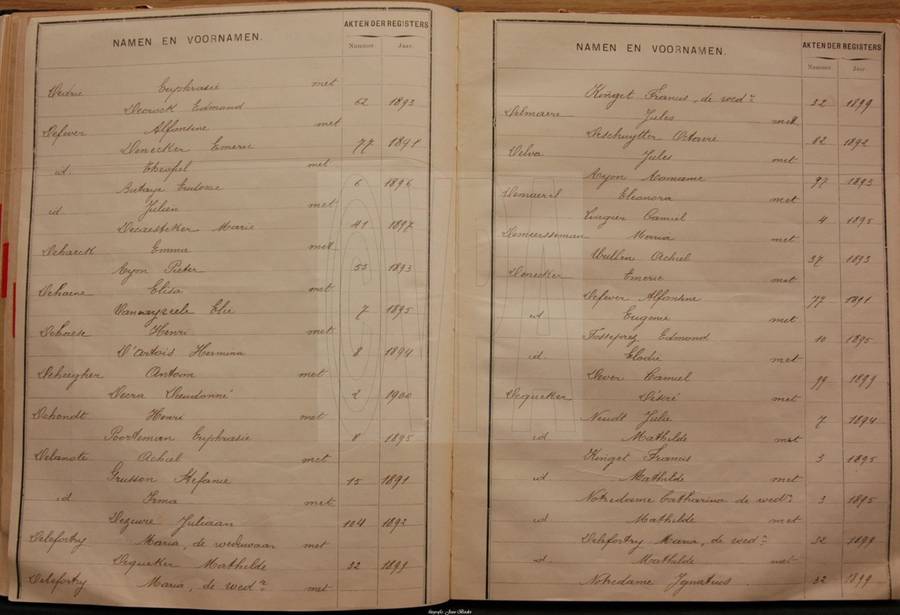 NAMEN EN VOORNAMEN.
AKTEN DER REGISTERS
Nummer Jaar
Dedrie Euphrasie met
Deconck Edmond 62 1893
Defever Alfontine met
Denecker Emerie 77 1891
id. met
6 1896
id Julien met
Marie 41 1897
Dehaeck Emma met
Ryon Pieter 55 1893
Dehaene Elisa met
Elie 7 1895
Dehaese Henri met
D'artois Hermina 8 1894
Deheugher Antoon met
Decra Dieudonné 2 1900
Dehondt Henri met
Poorteman Euphrasie 8 1895
Delanote Achiel met
Grusson Stefanie 15 1891
id Irma met
Juliaan 104 1892
Delefortry Maria, de weduwaar met
Dequeker Mathilde 32 1899
Delefortry Maria, de wed? met
NAMEN EN VOORNAMEN.
AKTEN DER REGISTERS
Nummer Jaar
Kinget Francis, de wed? 32 1899
Delmaere Jules met
Deschuytter Octavie 82 1892
Delva Jules met
Ryon 97 1893
Eleonora met
Camiel 4 1895
Demeersseman Maria met
Wullen Achiel 37 1893
Denecker Emerie met
Defever Alfontine 77 1891
id Eugenie met
Fosseprez Edmond 10 1895
id Elodie met
Dever Camiel 99 1899
Dequeker Désiré met
Neudt Julie 7 1894
id Mathilde met
Kinget Francis 3 1895
id Mathilde met
Notredame Catharina de wed? 3 1895
id Mathilde met
Delefortry Maria, de wed? 32 1899
id. Mathilde met
Notredame Ignatius. 32 1899